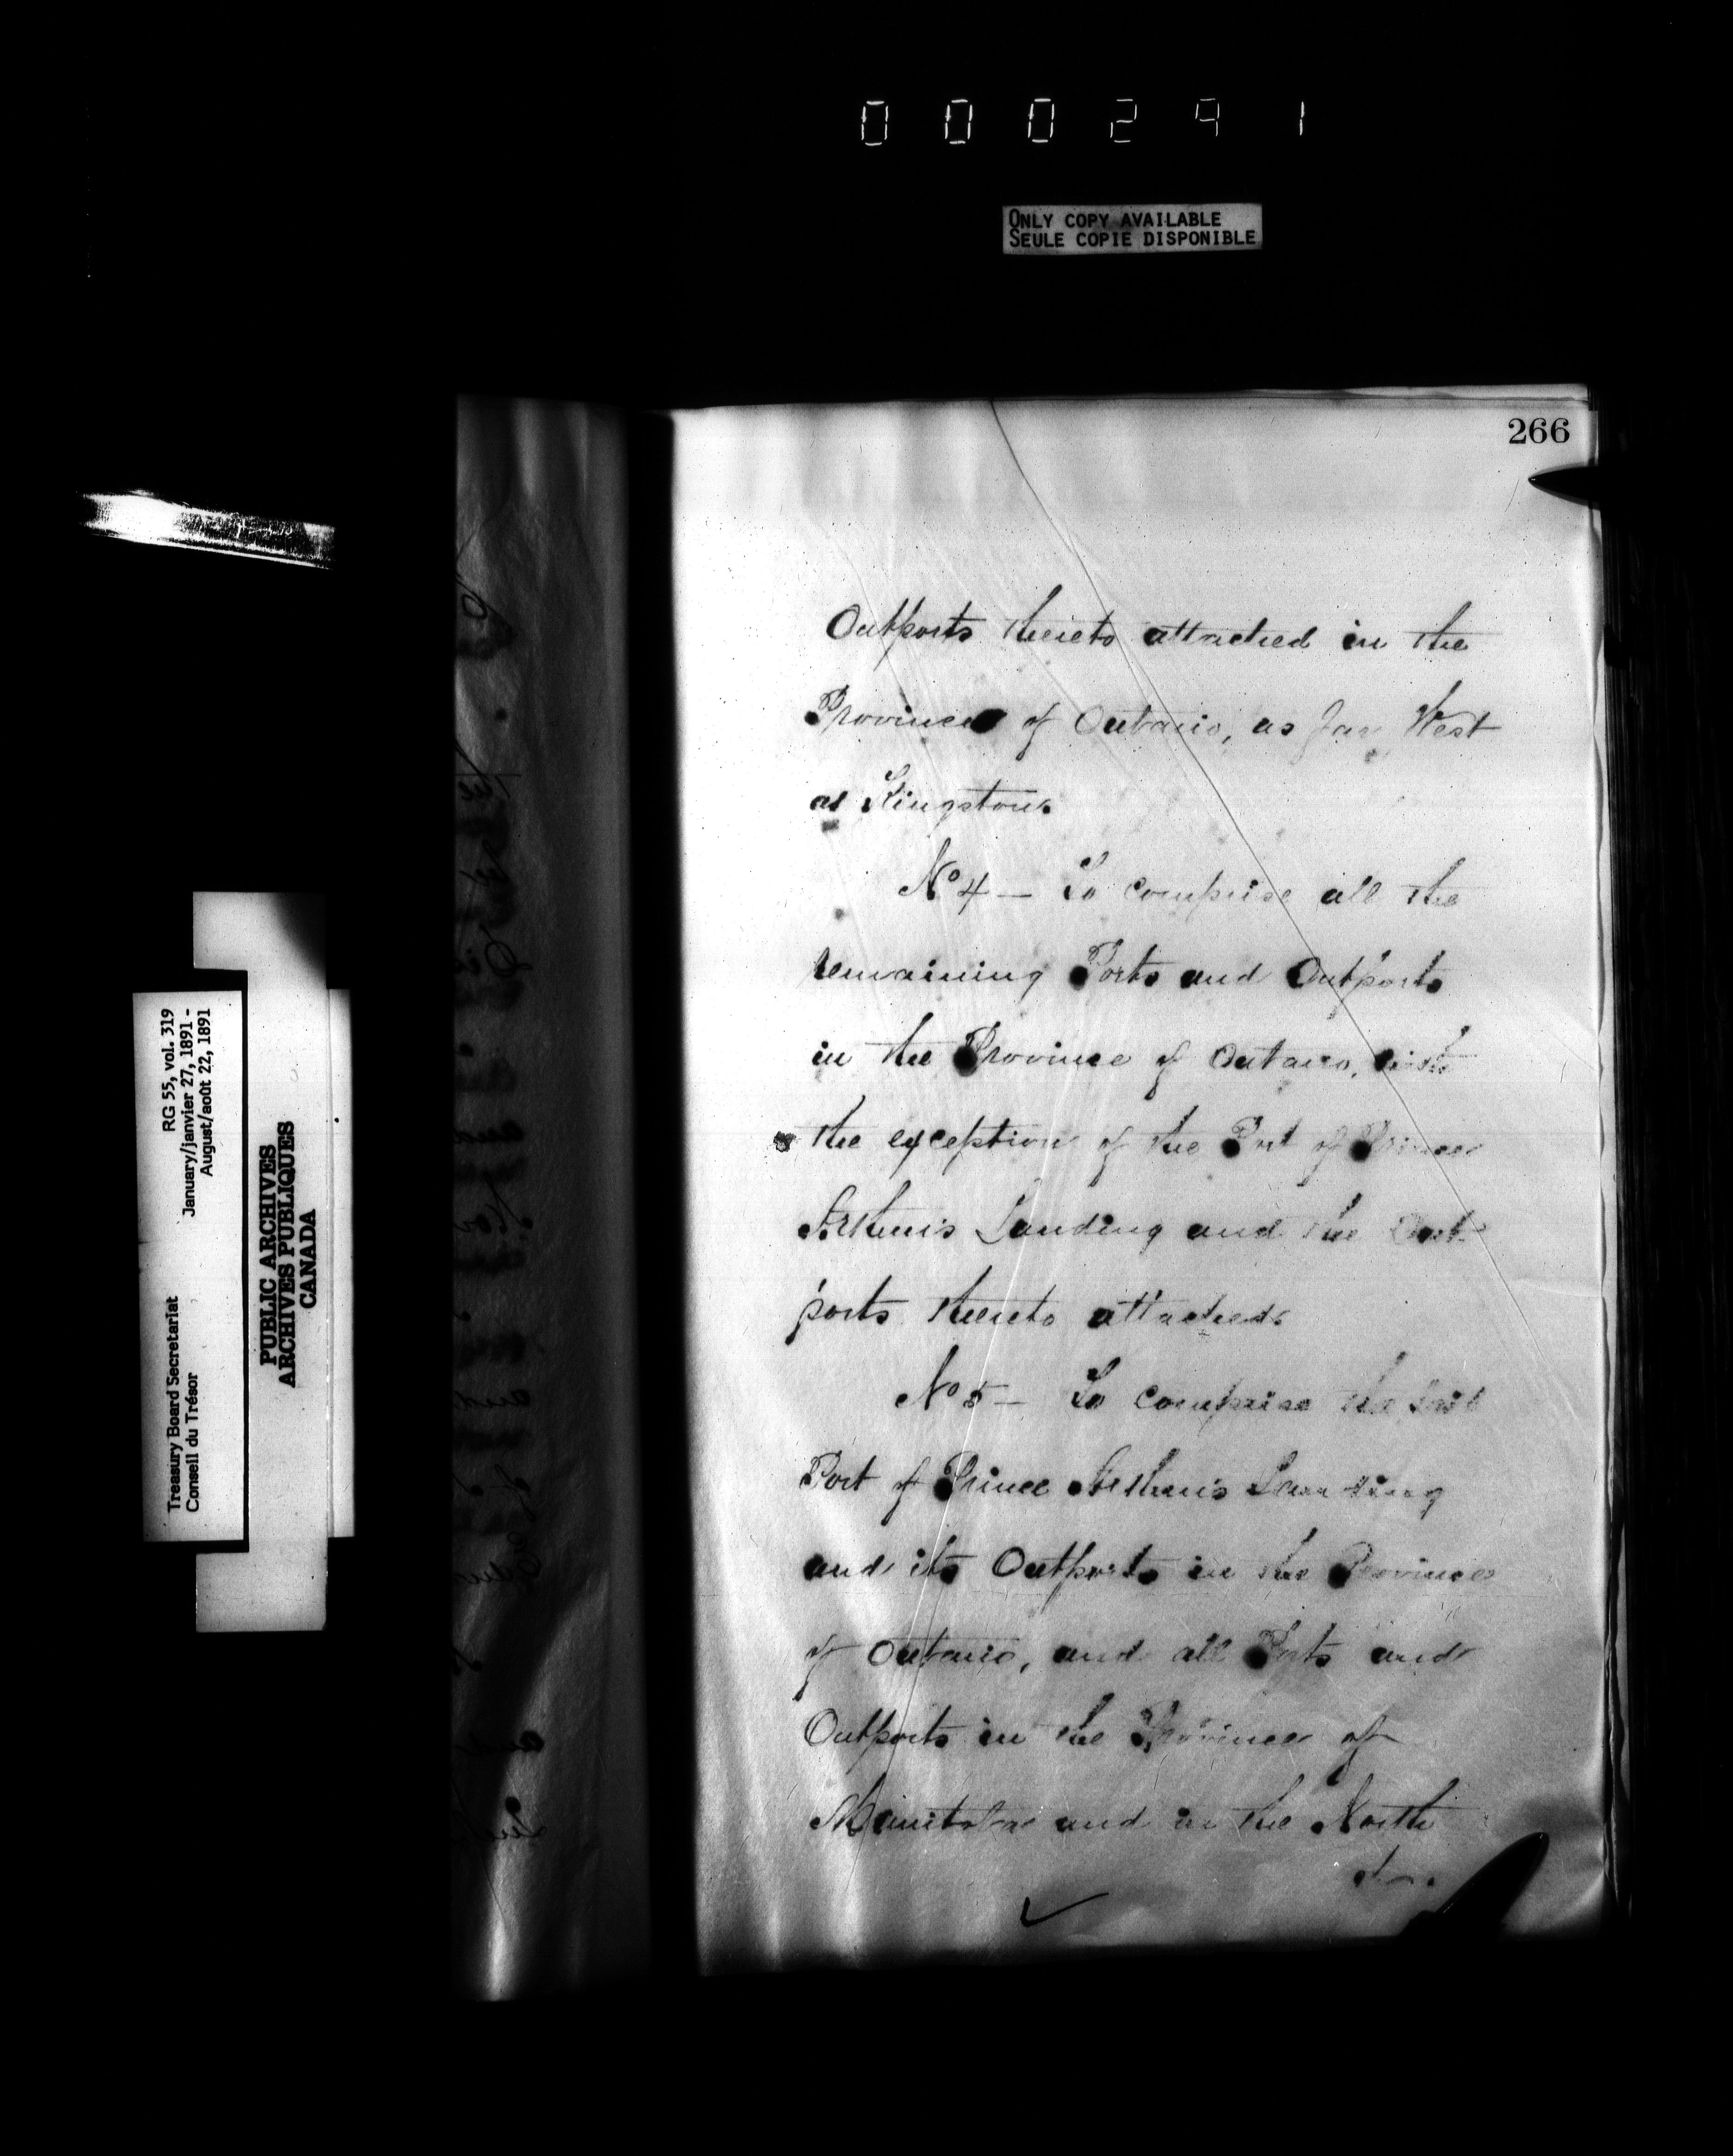 000291
ONLY COPY AVAILABLE
SEULE COPIE DISPONIBLE
266
Outports thereto attached in the
Province of Ontario, as far West
as Kingston.
No 4 — To comprise all the
remaining Ports and Outports
in the Province of Ontario, with
the exception of the Port of Prince
Arthur's Landing and the Out-
ports thereto attached.
No 5 — To comprise the said
Port of Prince Arthur's Landing
and its Outports in the Province
of Ontario, and all Ports and
Outports in the Province of
Manitoba and in the North
Treasury Board Secretariat RG 55, vol. 319
Conseil du Trésor January/janvier 27, 1891 -
August/août 22, 1891
PUBLIC ARCHIVES
ARCHIVES PUBLIQUES
CANADA